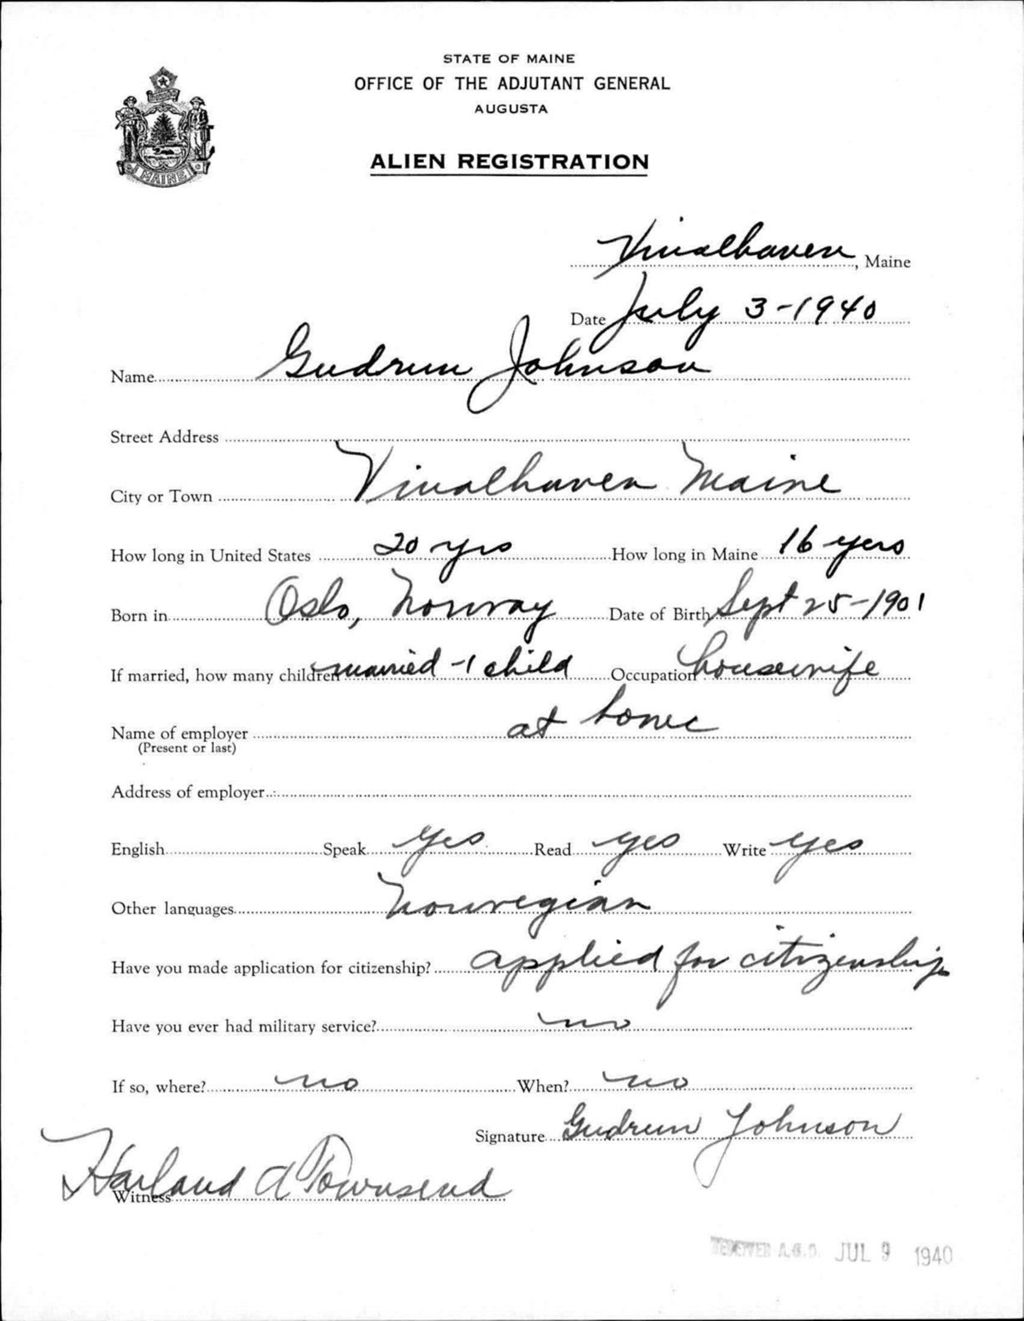 STATE OF MAINE
OFFICE OF THE ADJUTANT GENERAL
AUGUSTA
ALIEN REGISTRATION
MAINE
Vinalhaven, Maine
Date July 3-1940
Name Gudrun Johnson
Street Address
City or Town Vinalhaven Maine
How long in United States 20 yrs How long in Maine 16 yers
Born in Oslo, Norway Date of Birth Sept 25-1901
If married, how many children married -1 child Occupation housewife
Name of employer at home
(Present or last)
Address of employer
English Speak yes Read yes Write yes
Other languages Norwegian
Have you made application for citizenship? applied for citizenship
Have you ever had military service? no
If so, where? no When? no
Signature Gudrun Johnson
Witness Harland A Townsend
RECEIVED A.G.O. JUL 9 1940